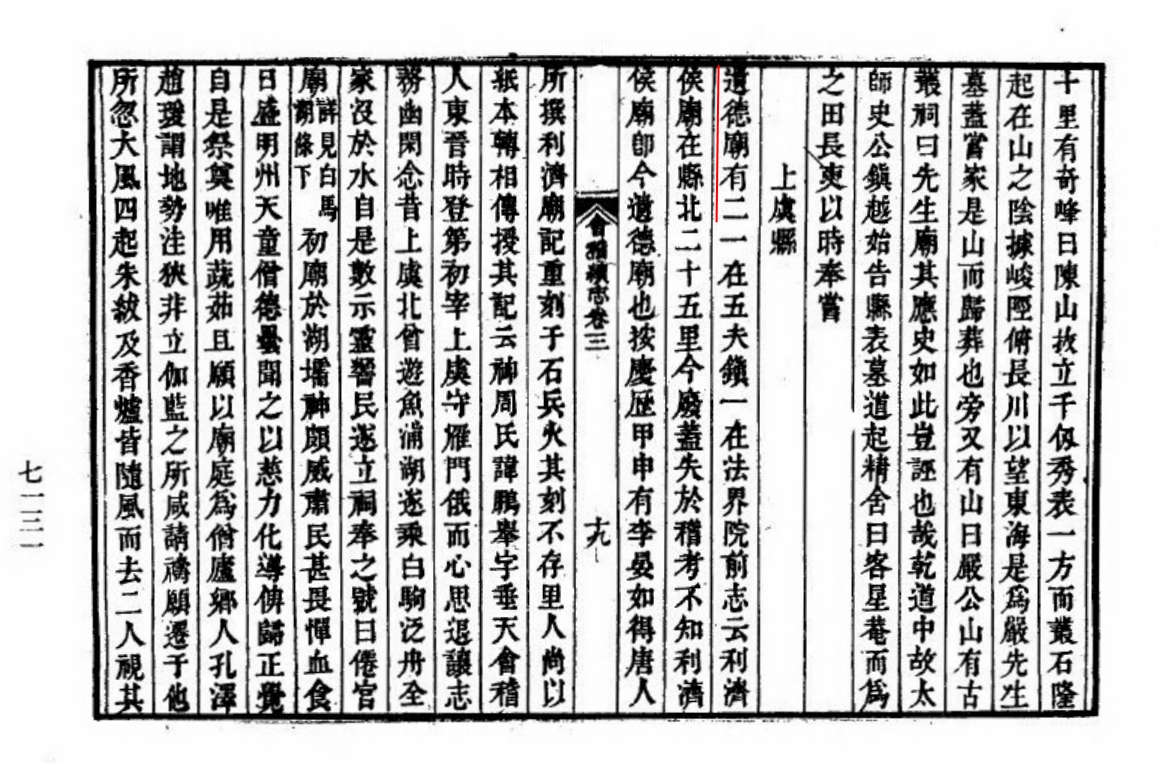 十里有奇峰曰陳山拔立千仭秀表一方而叢石隆
起在山之陰據峻陘俯長川以望東海是爲嚴先生
墓蓋嘗家是山而歸葬也旁又有山曰嚴公山有古
叢祠曰先生廟其應史如此豈誣也哉乾道中故太
師史公鎭越始告縣表墓道起精舍曰客星菴而爲
之田長吏以時奉嘗
上虞縣
遺德廟有二一在五夫鎭一在法界院前志云利濟
侯廟在縣北二十五里今廢蓋失於稽考不知利濟
侯廟卽今遺德廟也按慶歴甲申有李晏如得唐人
會稽續志卷三
十九
所撰利濟廟記重刻于石兵火其刻不存里人尚以
紙本轉相傳授其記云神周氏諱鵬舉字垂天會稽
人東晉時登第初宰上虞守雁門俄而心思退讓志
務幽閑念昔上虞北曾遊魚浦湖遂乘白駒泛舟全
家沒於水自是數示靈響民遂立祠奉之號曰倦官
廟詳見白馬湖條下初廟於湖壖神頗威肅民甚畏憚血食
日盛明州天童僧德曇聞之以慈力化導俾歸正覺
自是祭奠唯用蔬茹且願以廟庭爲僧廬鄉人孔澤
趙瑗謂地勢洼狹非立伽藍之所咸請禱願遷于他
所忽大風四起朱紱及香爐皆隨風而去二人視其
七一三一